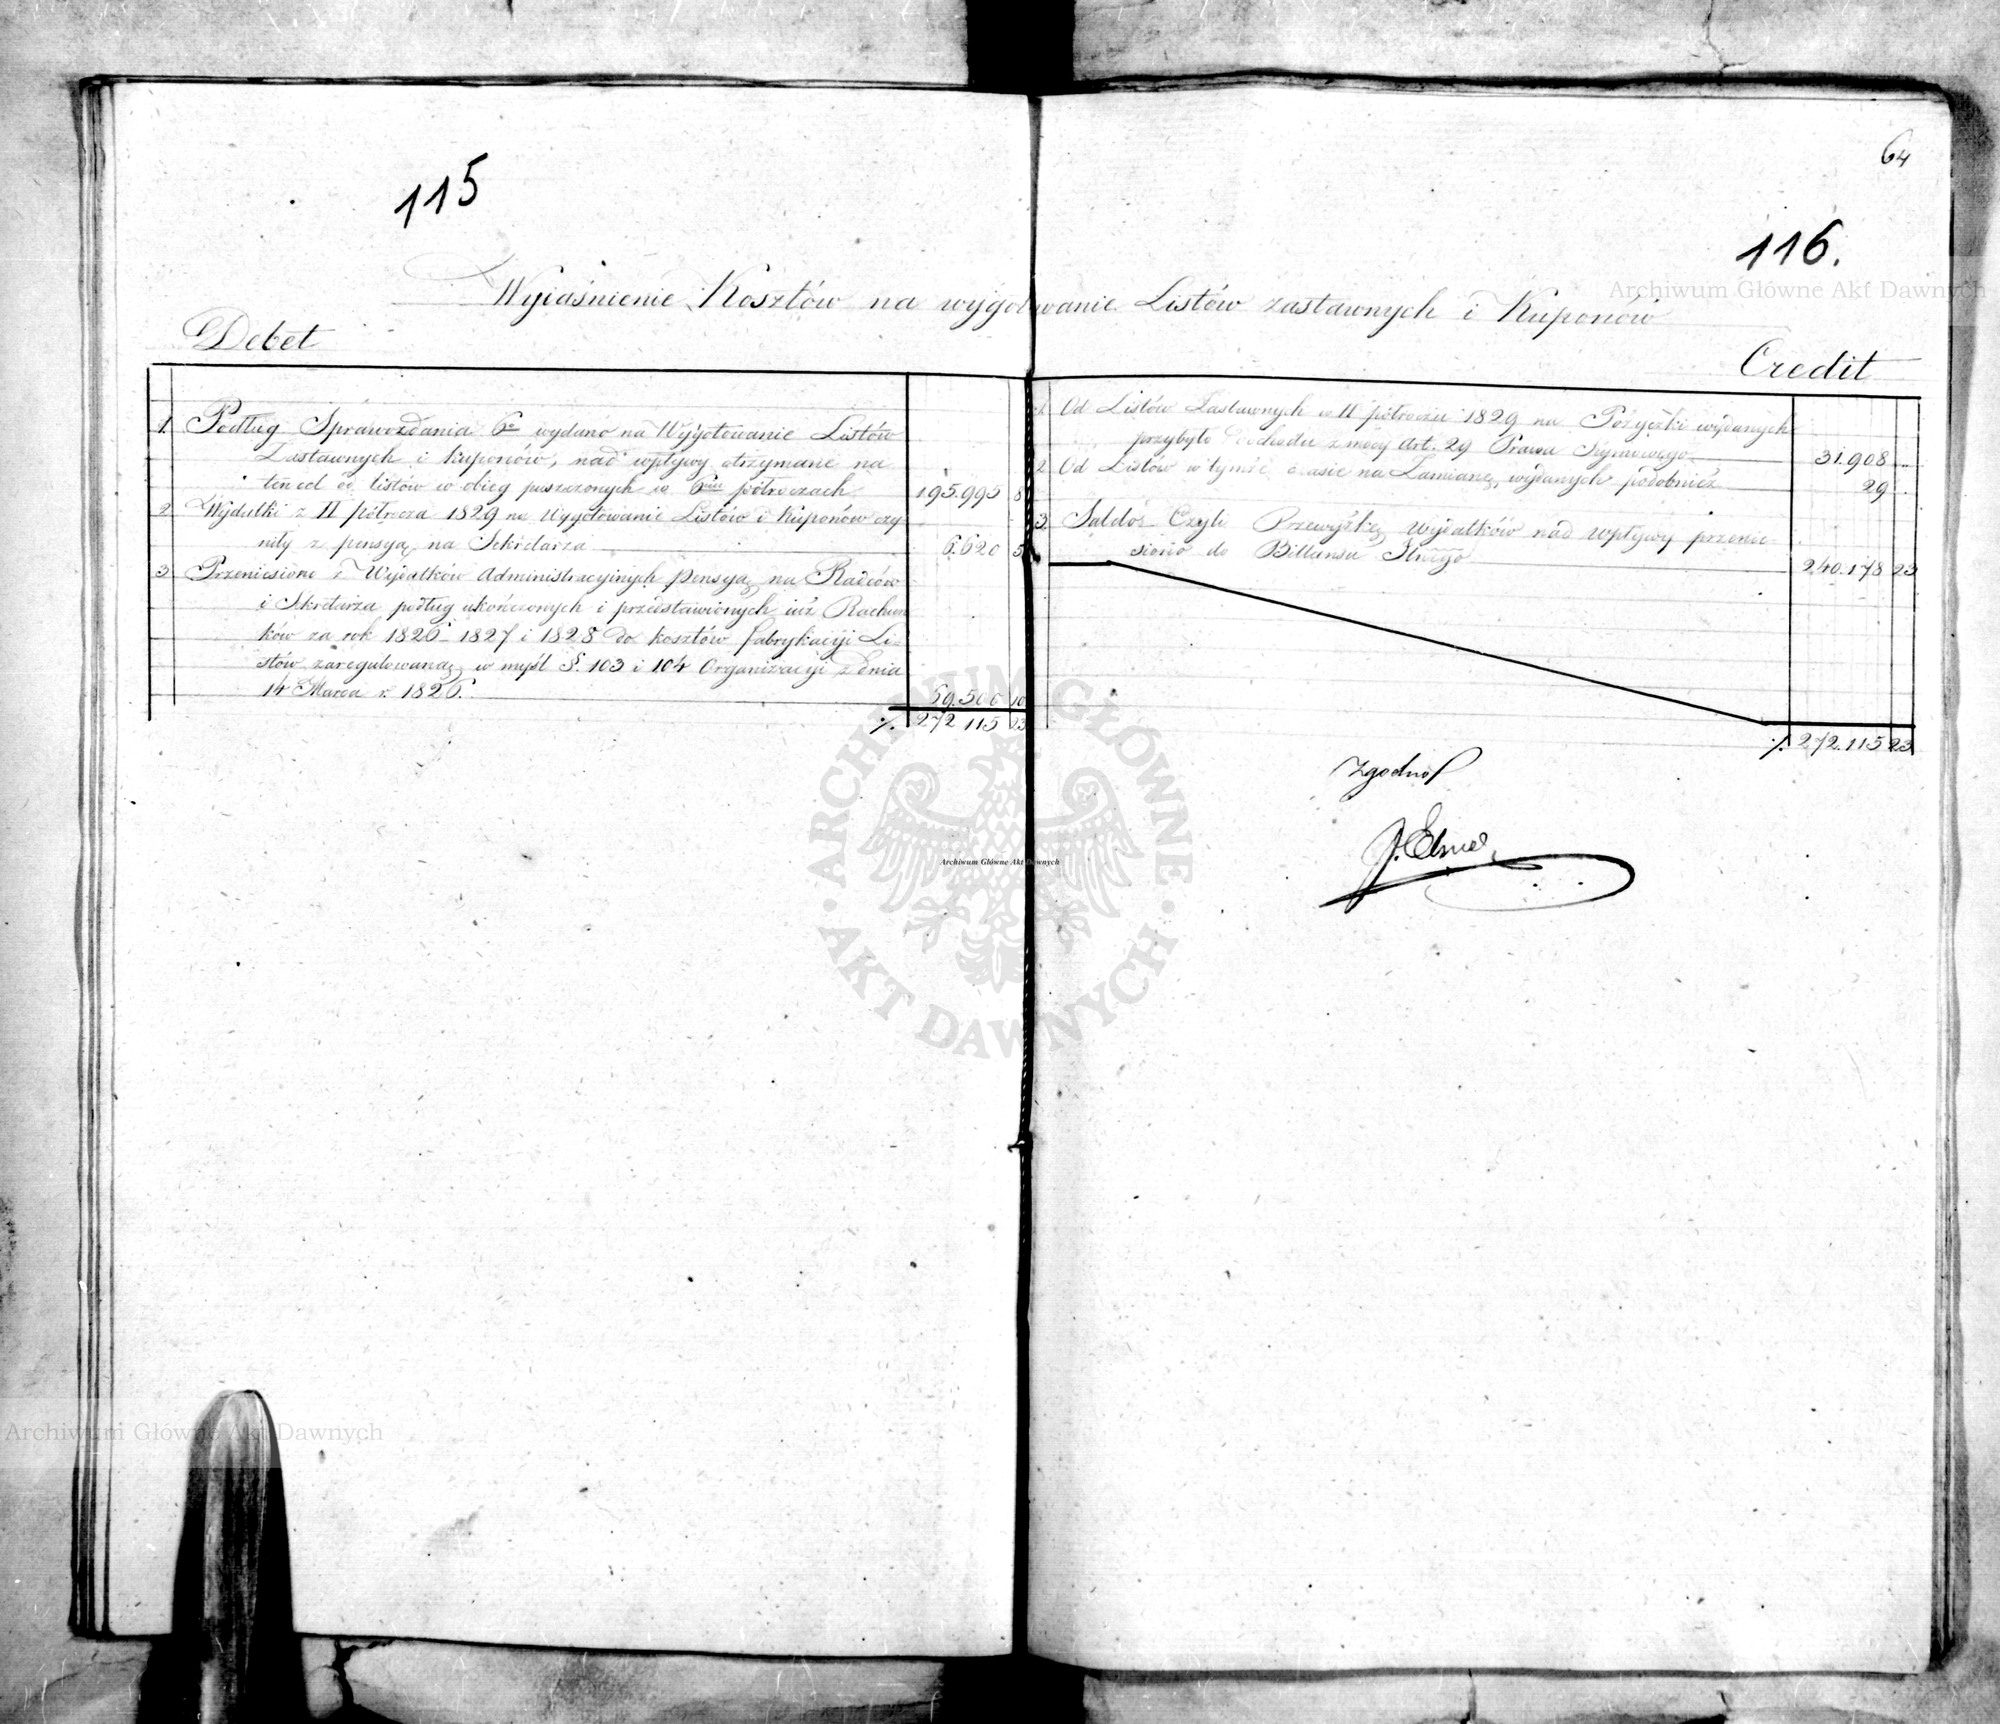 64
115
116.
Wyiaśnienie Kosztów na wygotowanie Listów zastawnych i Kuponów
Debet
1. Podług Sprawozdania 6º wydano na Wygotowanie Listów
Zastawnych i Kuponów, nad wpływy otrzymane na
ten cel od listów w obieg puszczonych w 6ciu półroczach 195.995 8
2. Wydatki z II półrocza 1829 na Wygotowanie Listów i Kuponów czy-
niły z pensyą na Sekretarza 6.620 5
3. Przeniesiono z Wydatków Administracyinych pensyą na Radców
i Sekretarza podług ukończonych i przedstawionych iuż Rachun
ków za rok 1826 1827 i 1828 do kosztów fabrykacyi Li-
stów zaregulowaną w myśl §. 103 i 104 Organizacyi z dnia
14 Marca r. 1826. 69.500 10
·/. 272 115 23
Credit
1. Od Listów Zastawnych w II półroczu 1829 na Pożyczki wydanych
przybyło Dochodu z mocy Art. 29 Prawa Seymowego 31.908 ..
2. Od Listów w tymże czasie na Zamianę wydanych podobnież 29 .
3. Saldo Czyli Przewyżkę wydatków nad wpływy przenie-
siono do Billansu 240.178 23
·/. 272.115 23
Zgodno
Archiwum Główne Akt Dawnych
Archiwum Główne Akt Dawnych
Archiwum Główne Akt Dawnych
ARCHIWUM GŁÓWNE · AKT DAWNYCH ·